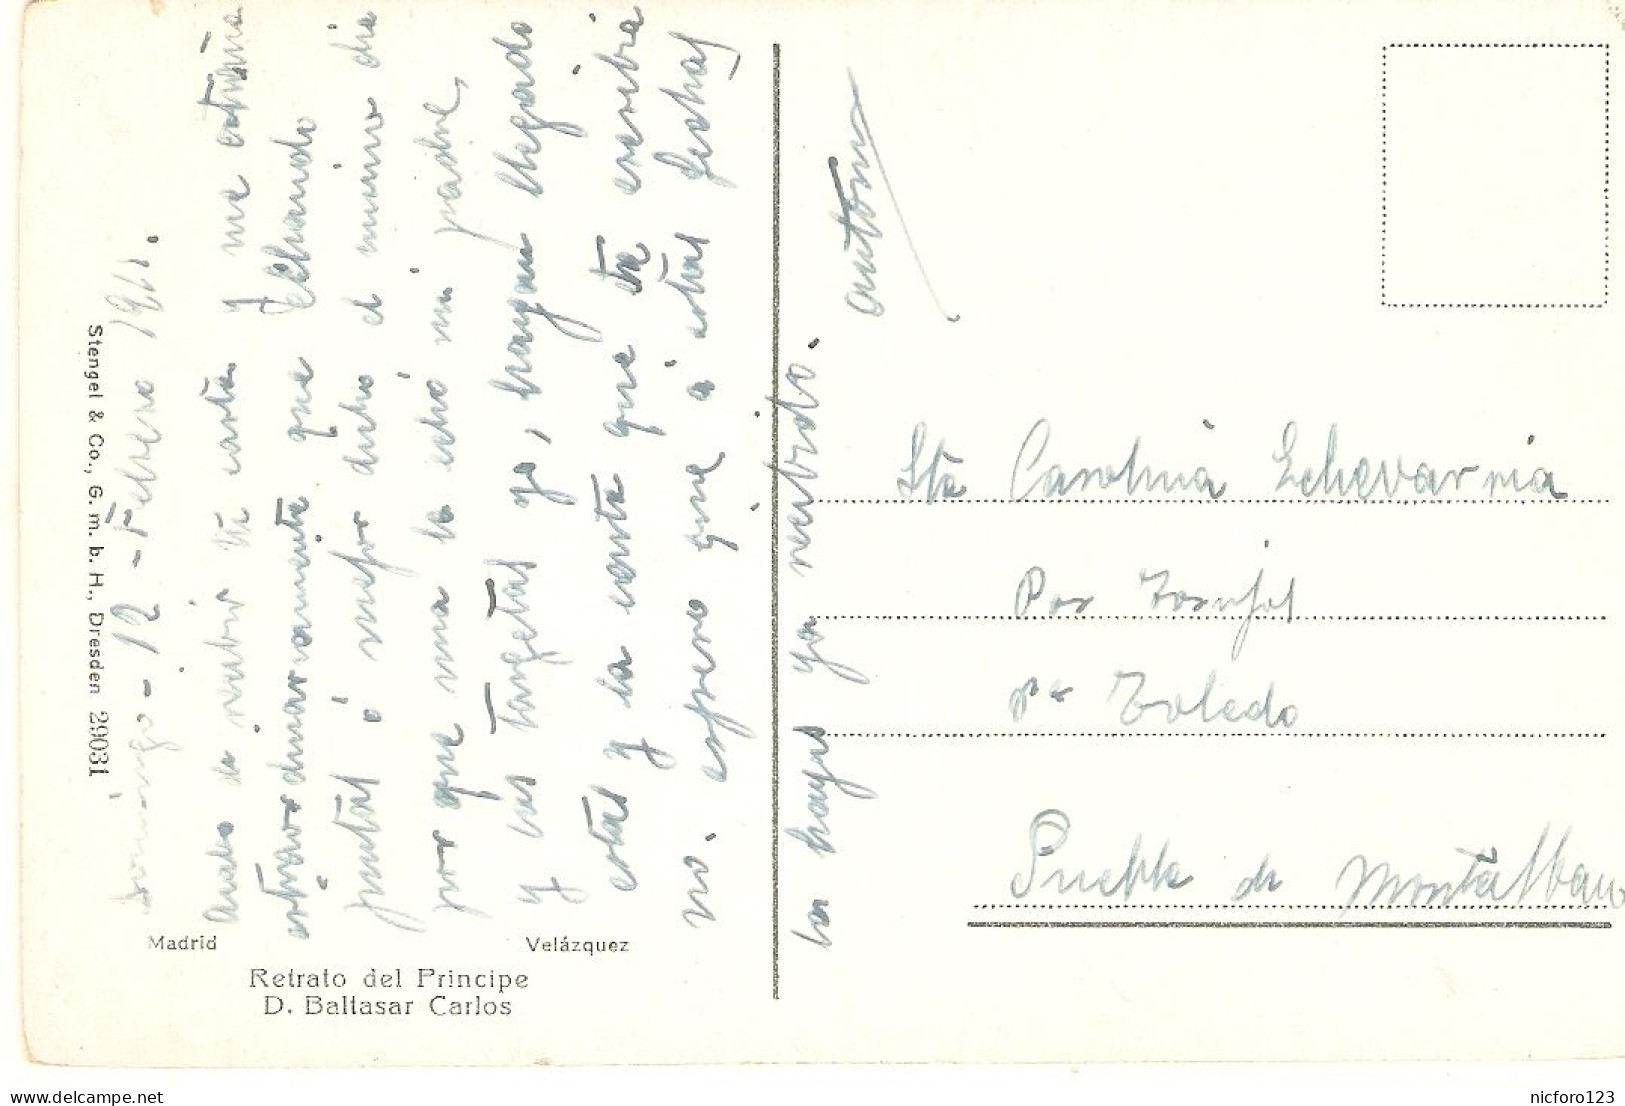 Domingo - 12 - Febrero 1911.
Acabo de recibir tu carta y me extraña
extraordinariamente que Echando
juntas ó mejor dicho el mismo dia
por que una la echó mi padre,
y las targetas ya, hayan llegado
estas y la carta que te escribia
no. espero que á estas fechas
la hayas ya recibido.
Antonio
Sta Carolina Echevarria
Por Torrijos
pa Toledo
Puebla de Montalban
Madrid
Velázquez
Retrato del Principe
D. Baltasar Carlos
Stengel & Co., G. m. b. H., Dresden 29031
delcampe.net
nicforo123